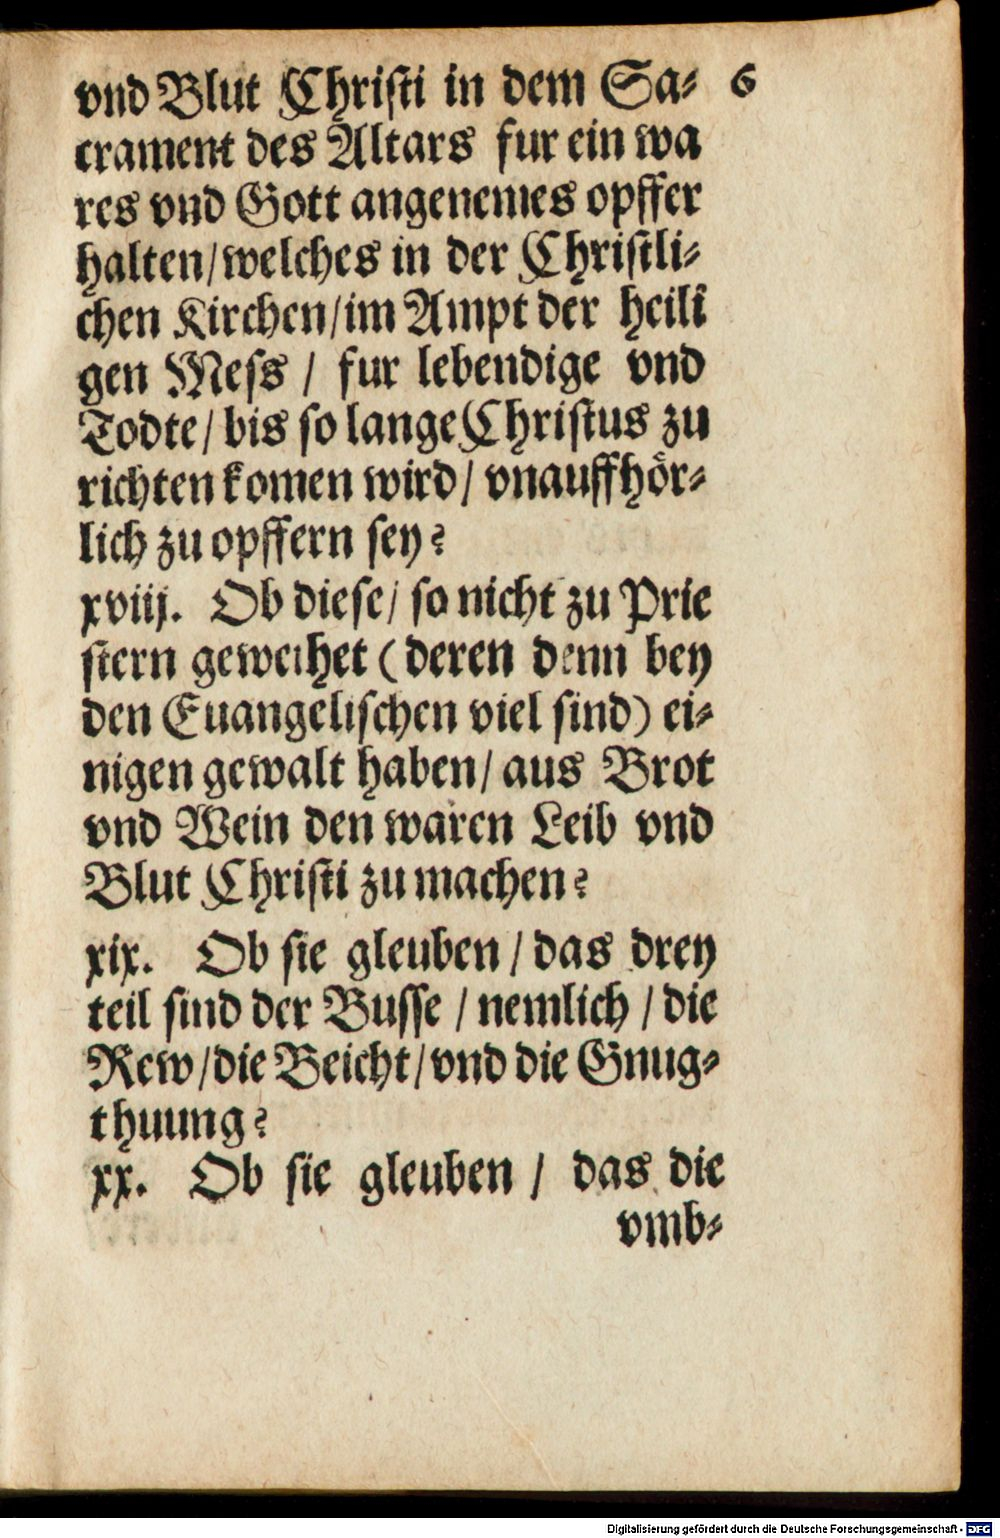 vnd Blut Christi in dem Sa- 6
crament des Altars fur ein wa
res vnd Gott angenemes opffer
halten/welches in der Christli-
chen Kirchen/im Ampt der heili
gen Mess / fur lebendige vnd
Todte/ bis so lange Christus zu
richten komen wird/ vnauffhör-
lich zu opffern sey?
xviij. Ob diese/ so nicht zu Prie
stern geweihet (deren denn bey
den Euangelischen viel sind) ei-
nigen gewalt haben/ aus Brot
vnd Wein den waren Leib vnd
Blut Christi zu machen?
xix. Ob sie gleuben / das drey
teil sind der Busse / nemlich / die
Rew/die Beicht/vnd die Gnug-
thuung?
xx. Ob sie gleuben / das die
vmb-
Digitalisierung gefördert durch die Deutsche Forschungsgemeinschaft - DFG